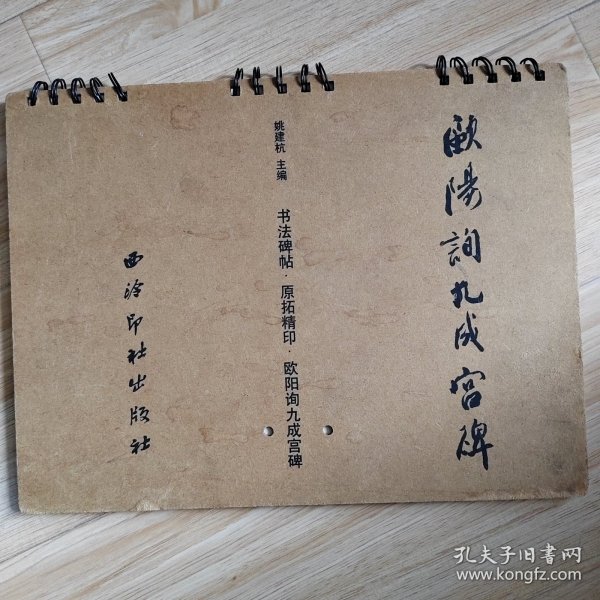 歐陽詢九成宮碑
姚建杭 主编
书法碑帖·原拓精印·欧阳询九成宫碑
西泠印社出版社
孔夫子旧书网
www.kongfz.com